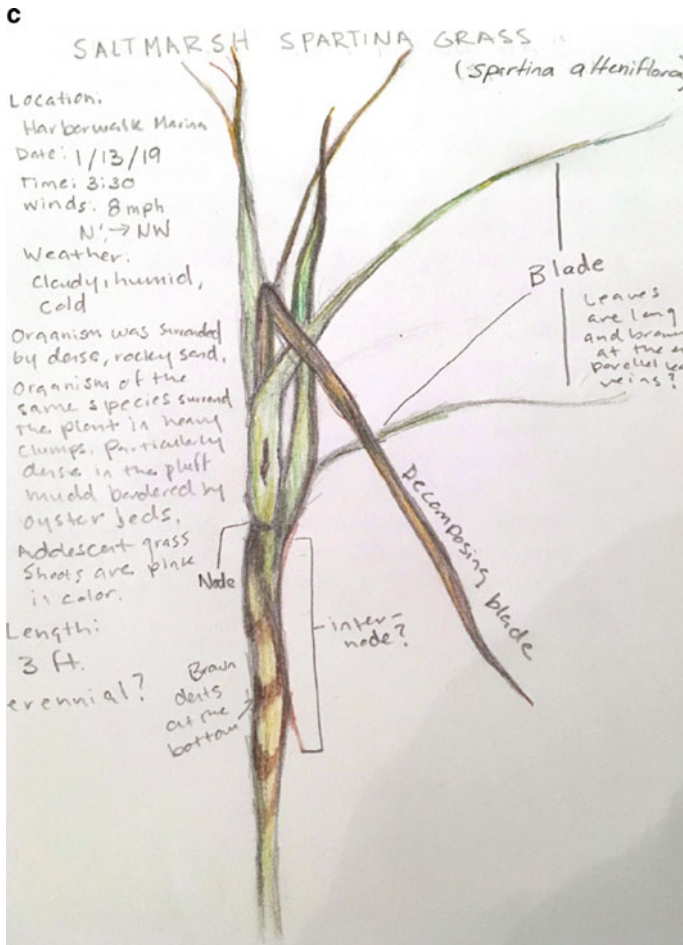 c
SALTMARSH SPARTINA GRASS
(Spartina alteniflora)
Location:
Harborwalk Marina
Date: 1/13/19
Time: 3:30
winds: 8 mph
N → NW
Weather:
cloudy, humid,
cold
Organism was surronded
by dense, rocky sand.
Organism of the
same species surrond
the plant in heavy
clumps. Particularly
dense in the pluff
mudd bordered by
oyster beds.
Addlescent grass
shoots are pink
in color.
Length:
3 ft.
erennial?
Blade
Leaves
are long
and brown
at the en
parellel lea
veins?
Decomposing blade
Node
inter-
node?
Brown
dents
at the
bottom